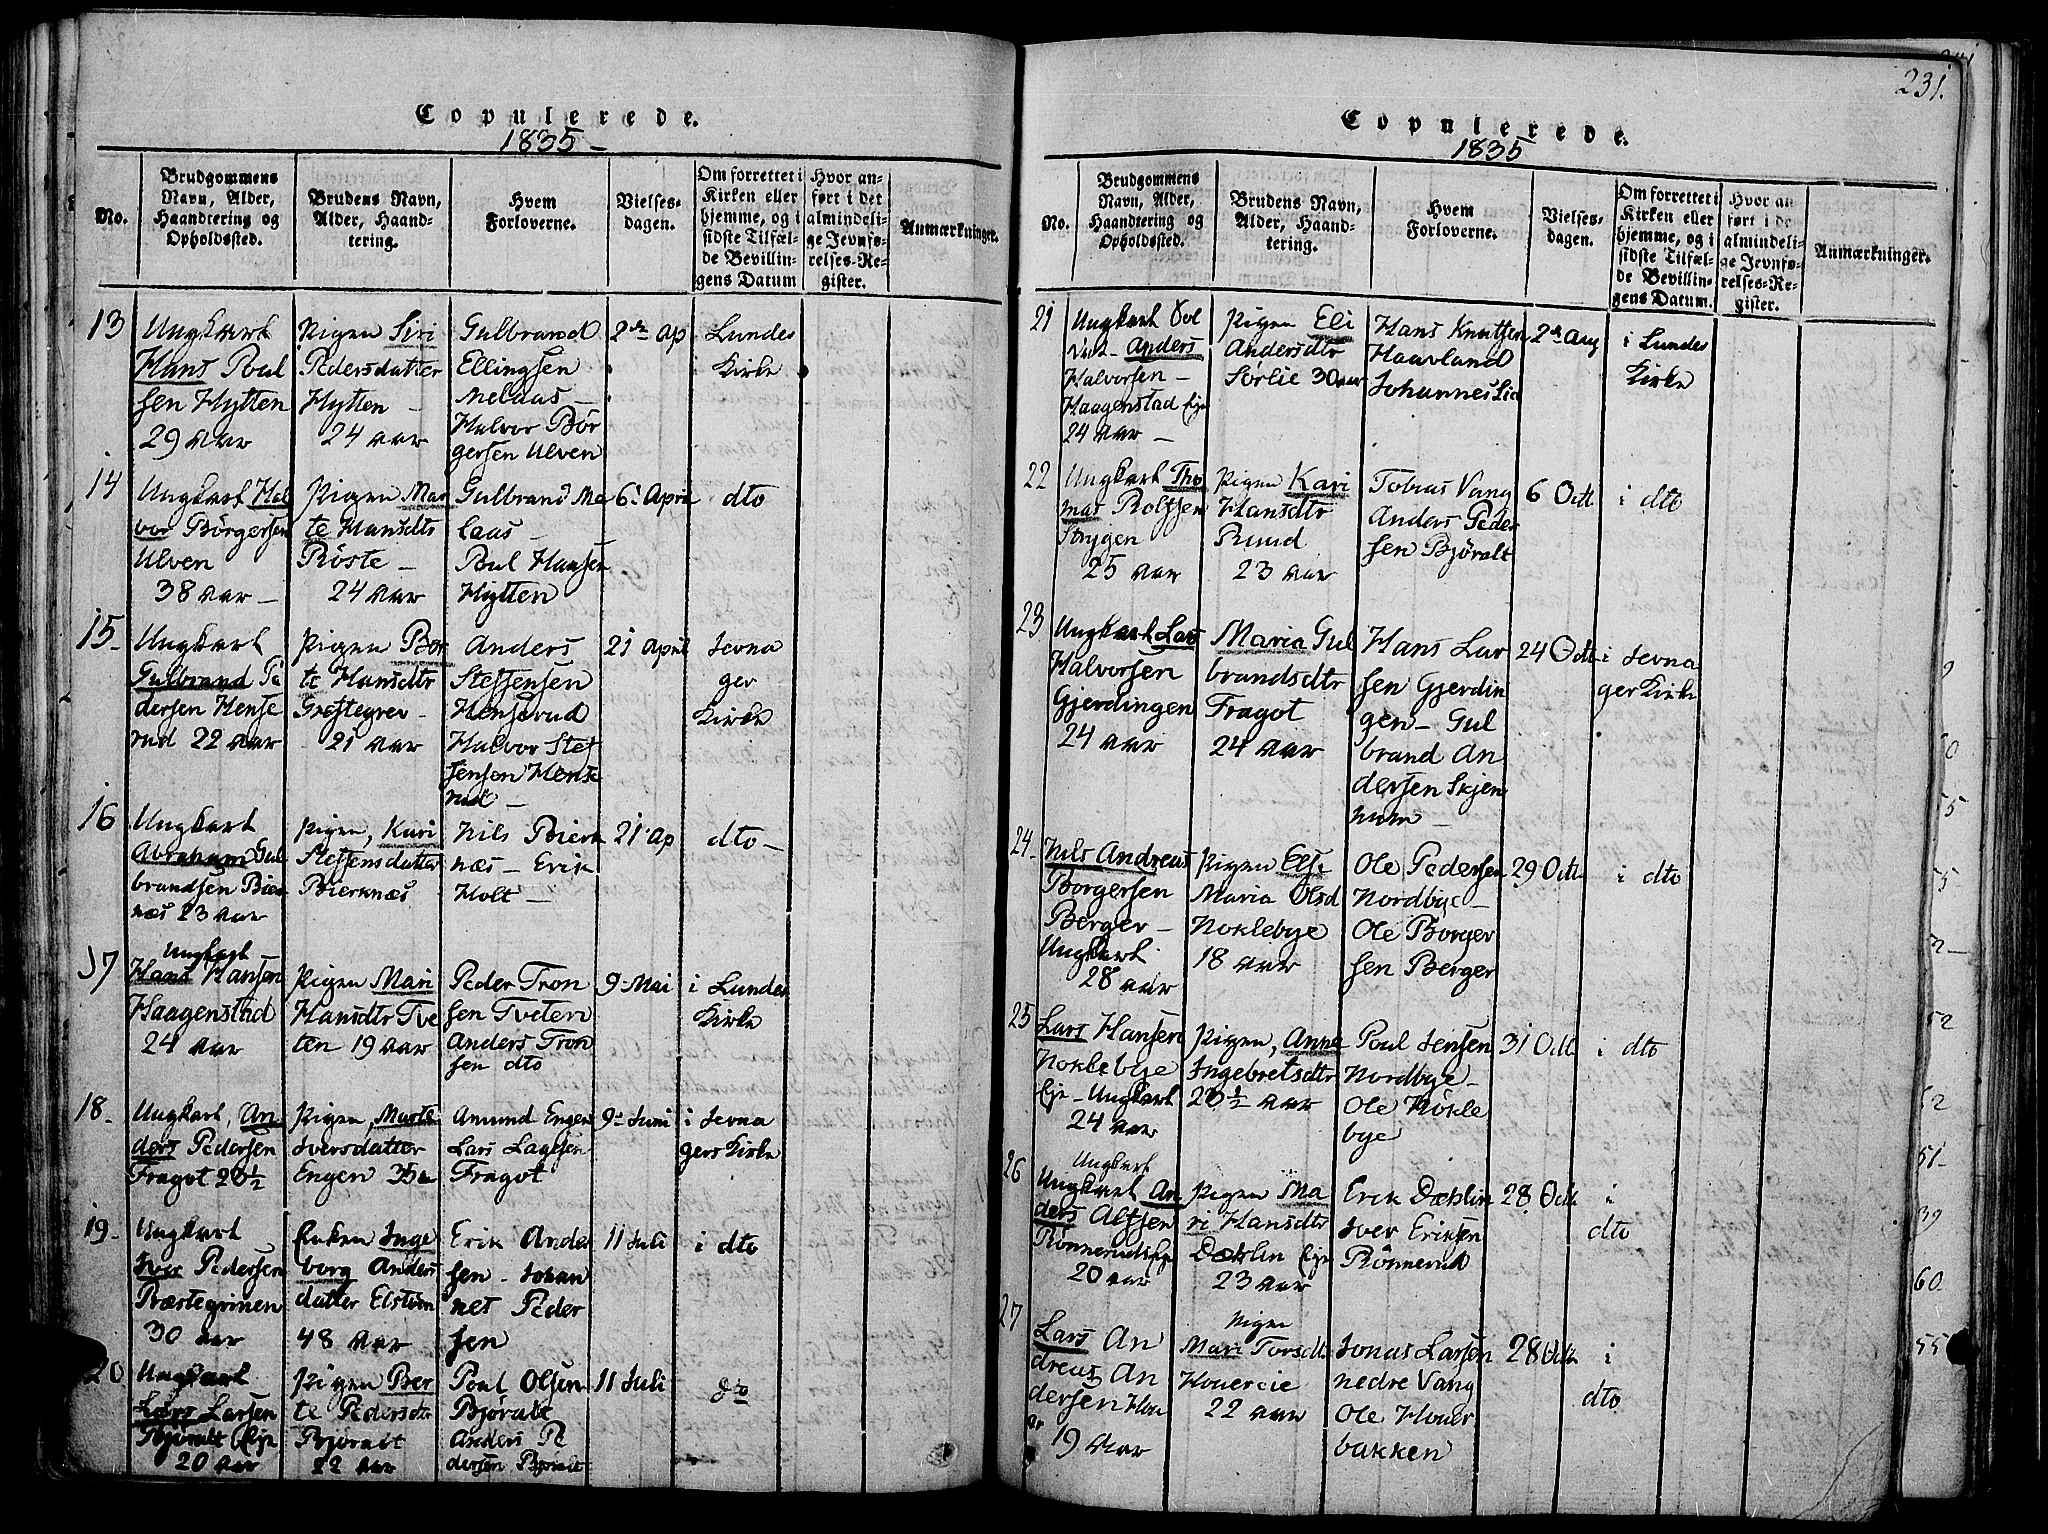 Copulerede.
1835 –
No.
Brudgommens
Navn, Alder,
Haandtering og
Opholdssted.
Brudens Navn,
Alder, Haand-
tering.
Hvem
Forloverne.
Vielses-
dagen.
Om forrettet i
Kirken eller
hjemme, og i
sidste Tilfæl-
de Bevillin-
gens Datum
Hvor an-
ført i det
almindeli-
ge Jevnfø-
relses-Re-
gister.
Anmærkninger.
13
Ungkarl
Hans Poul
sen Hytten
29 Aar
Pigen Siri
Pedersdatter
Hytten –
24 Aar
Gulbrand
Ellingsen
Melaas –
Halvor Bør
gersen Ulven
2den Ap
Lundes
Kirke
14
Ungkarl Hal
vor Børgersen
Ulven
38 Aar –
Pigen Mar
te Hansdtr
Røste –
24 Aar
Gulbrand Me
laas –
Poul Hansen
Hytten
6. April
dto
15
Ungkarl
Gulbrand Pe
dersen Hense
rud 22 Aar
Pigen Ber
te Hansdtr
21 Aar
Anders
Steffensen
Henserud
Halvor Stef
fensen Hense
rud –
21 April
Jevna
ger
Kirke
16
Ungkarl
Abraham Gul
brandsen Bier
næs 23 Aar
Pigen, Kari
Steffensdatter
Bierknæs
Nils Bierk
næs – Erik
Holt –
21. Ap
dto –
17
Ungkarl
Hans Hansen
Haagenstad
24 Aar
Pigen Mari
Hansdtr Tve
ten 19 Aar
Peder Tron
sen Tveten
Anders Tron
sen dto
9 Mai
i Lundes
Kirke
18
Ungkarl, An
ders Pedersen
Fragot 26½
Pigen, Marte
Iversdatter
Engen 35
Amund Engen
Lars Lagesen
Fragot
9 Juni
i Jevna
gers Kirke
19
Ungkarl
Iver Pedersen
Præstegrinen
30 Aar
Enken Inge
borg Anders
datter Elstøm
48 Aar
Erik Ander
sen – Johan
nes Peder
sen
11 Juli
i dto
20
Ungkarl
Lars Larsen
Bjøralt Eje
20 Aar
Pigen Ber
te Pedersdtr
Bjøralt
22 Aar
Poul Olsen
Bjøralt
Anders Pe
dersen Bjøralt
11 Juli
do
231.
Copulerede.
1835
No.
Brudgommens
Navn, Alder,
Haandtering og
Opholdssted.
Brudens Navn,
Alder, Haand-
tering.
Hvem
Forloverne.
Vielses-
dagen.
Om forrettet i
Kirken eller
hjemme, og i
sidste Tilfæl-
de Bevillin-
gens Datum.
Hvor an-
ført i de
almindeli-
ge Jevnfø-
relses-Re-
gister.
Anmærkninger.
21
Ungkarl
Anders
Halvorsen –
Haagenstad Eje
24 Aar –
Pigen Eli
Andersdtr
Sørlie 30 Aar
Hans Knutsen
Haavland
Johannes Lie
2den Aug
i Lundes
Kirke
22
Ungkarl Tho
mas Rolfsen
Strygen
25 Aar
Pigen Kari
Hansdtr
Ruud
23 Aar
Tobias Vang
Anders Peder
sen Bjøralt
6 Oct
i dto
23
Ungkarl Lars
Halvorsen
Gjerdingen
24 Aar
Maria Gul
brandsdtr
Fragot
24 Aar
Hans Lar
sen Gjerdin
gen – Gul
brand An
dersen Skjen
num –
24 Oct
i Jevna
ger Kirke
24
Nils Andreas
Borgersen
Berger –
Ungkarl
28 Aar
Pigen Else
Maria Olsd
Noklebye
18 Aar
Ole Pedersen
Nordbye –
Ole Borger
sen Berger
29 Oct
i dto
25
Lars Hansen
Noklebye
Eje – Ungkarl
24 Aar
Pigen, Anne
Ingebretsdtr
26½ Aar
Poul Jensen
Nordbye –
Ole Nøkle
bye
31 Oct
i dto
26
Ungkarl
Ungkarl An
ders Alfsen
Rønneruds Eje
20 Aar
Pigen Ma
ri Hansdtr
Dæhlin Eje
23 Aar
Erik Dæhlin
Iver Eriksen
Rønnerud
28 Oct
i
dto
27
Lars An
dreas An
dersen Hou
er
19 Aar
Pigen
Mari Torsdtr
Houereie
22 Aar
Jonas Larsen
nedre Vang
Ole Houer
bakken
28 Oct
i
dto
52
51
39
60
55